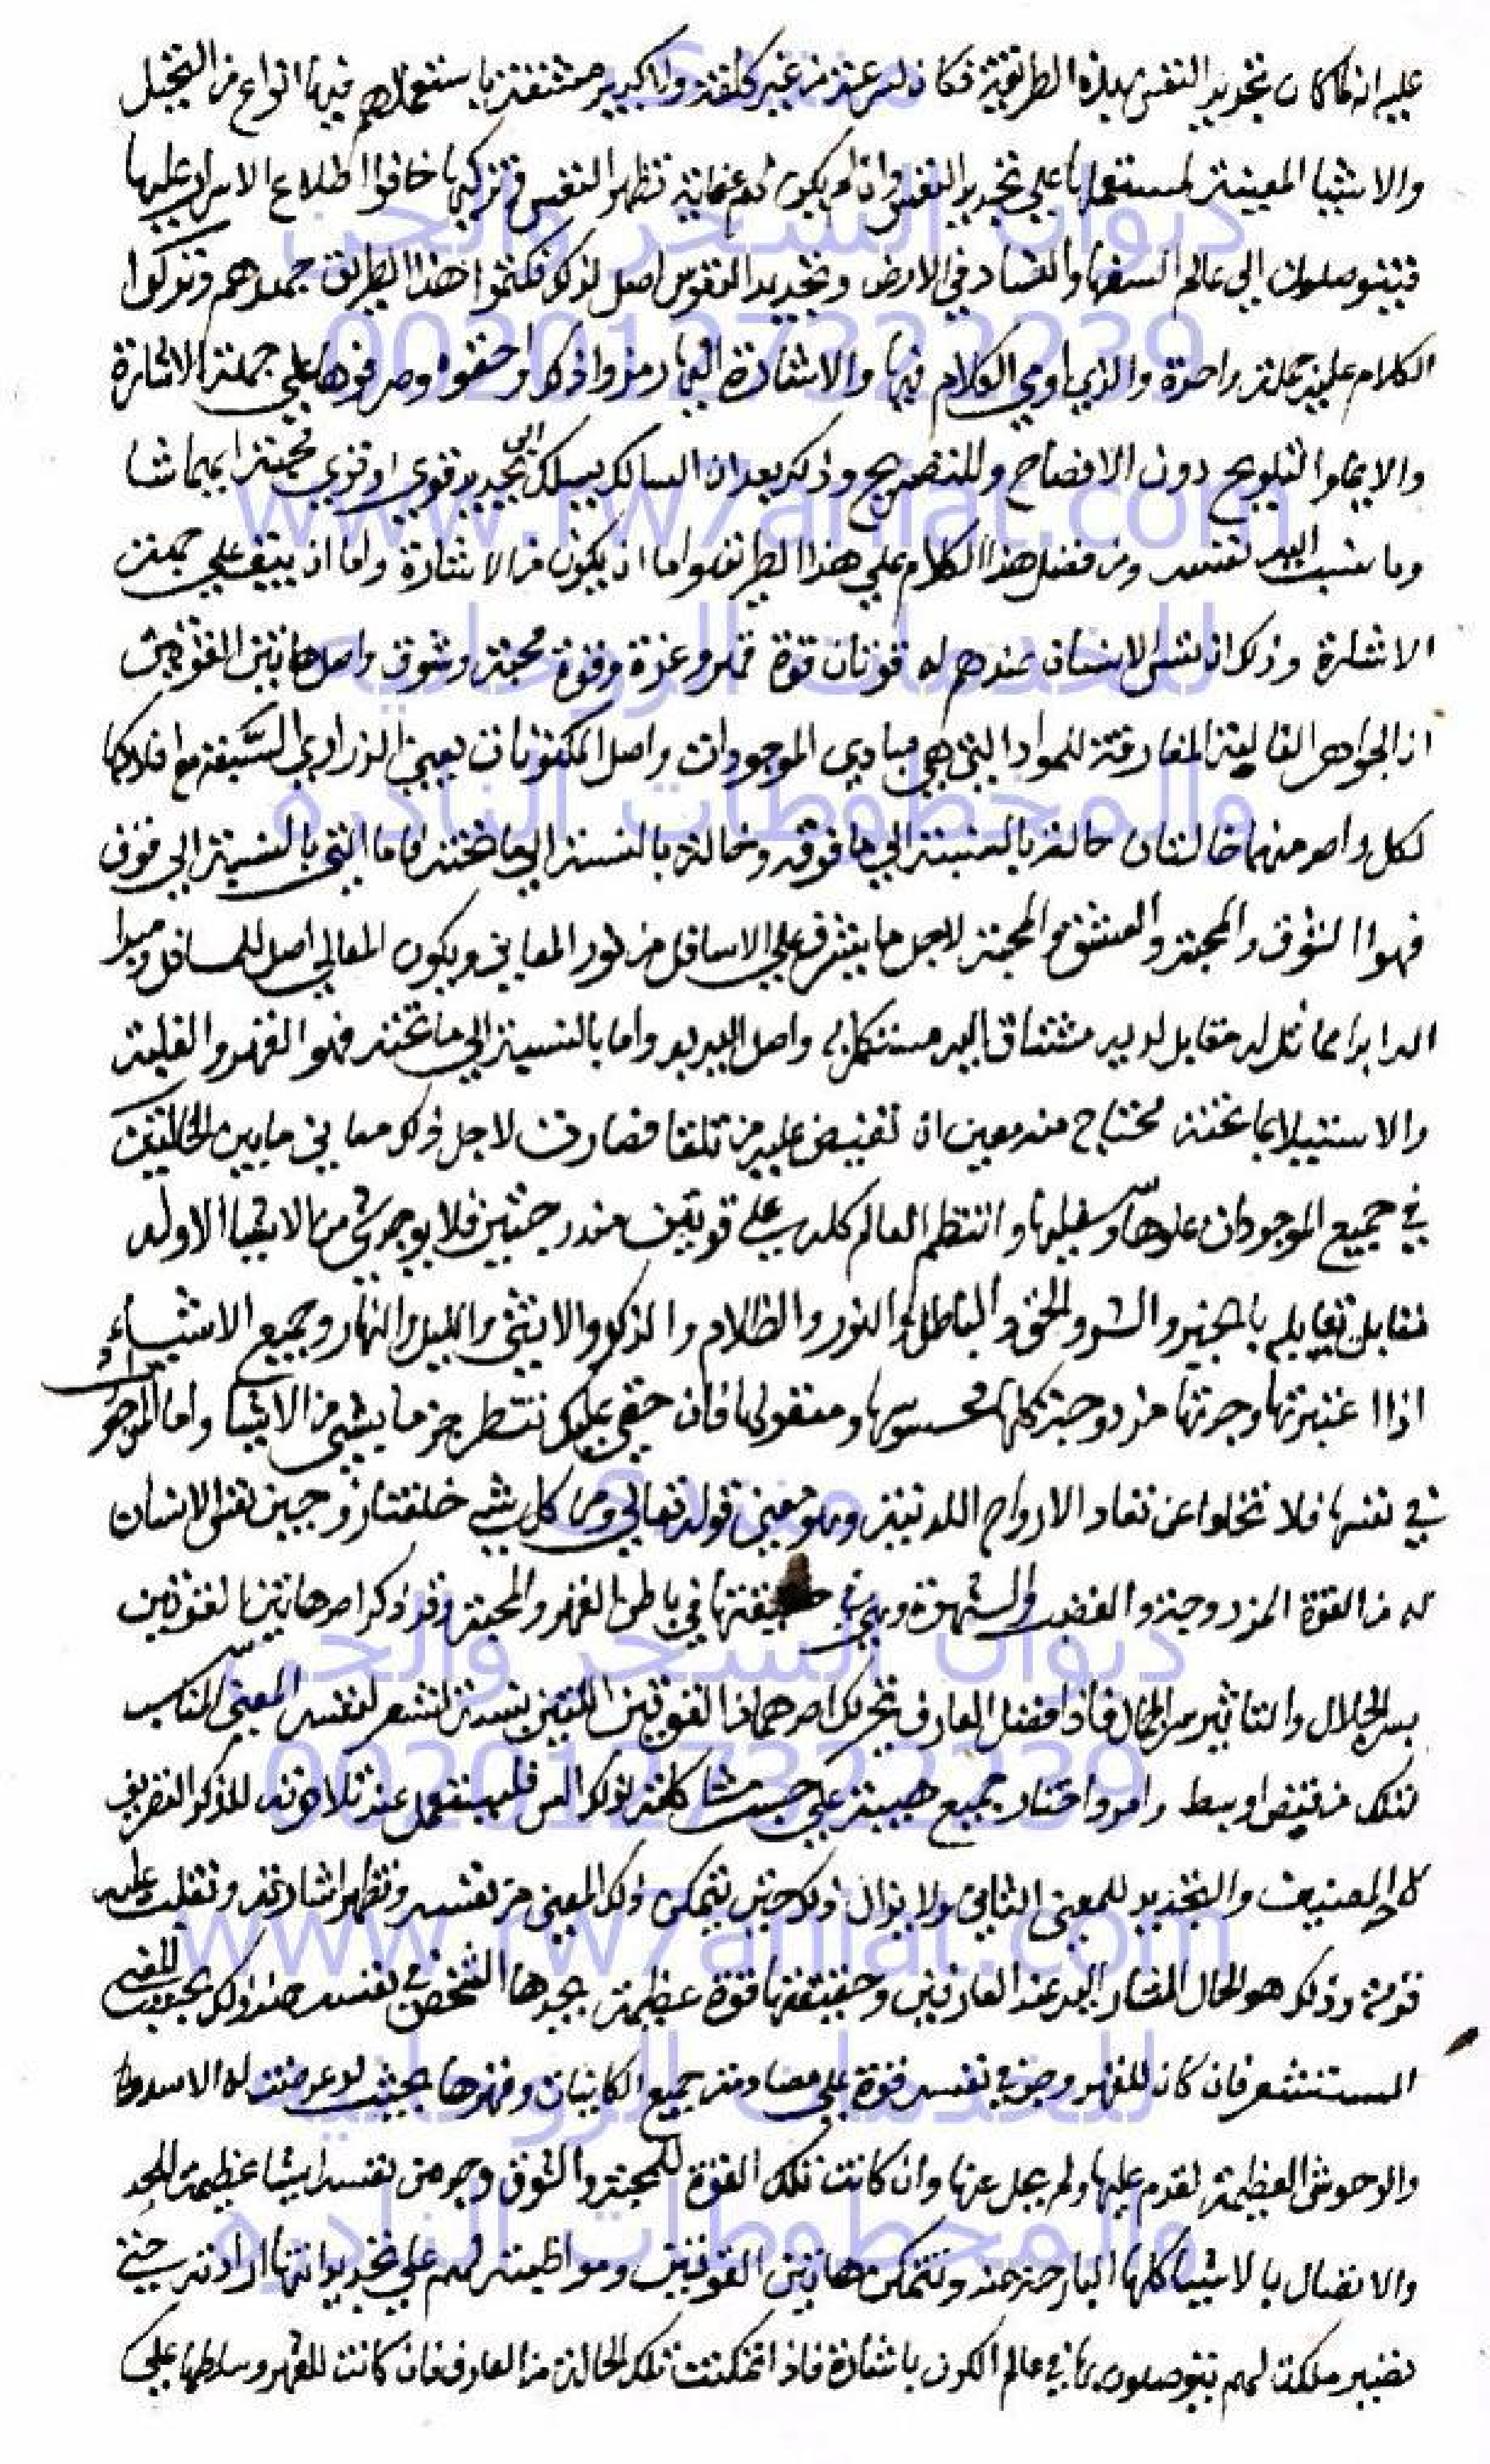 عليه انه لما كان تجريد النفس بهذه الطريقة فكان لهم عنه من غير كلفة ولا كبير مشقة باستعمالهم فيها انواع من التخيل
والاشيا المعينة لمستعملها علي تجريد النفس وان لم يكن لهم عناية تطهر النفس وتزكيها خافوا اطلاع الاشرار عليها
فيتوصلون الي عالم السفها والفساد في الارض وتجريد النفوس اصل لذلك فكتموا هذا الطريق جهدهم وتركوا
الكلام عليه جملة واحدة والذي اومي الكلام فيها والاشارة اليها رمزوا ذلك واخفوه وصرفوها علي جملة الاشارة
والايما والتلويح دون الافصاح والتصريح وذلك بعد ان السالك يسلك الى تجريد قوي او قوي محبته ايهما شا
وما نسبت اليه نفسه ومن فضل هذا الكلام علي هذا الطريق واما ان يكون من الاشارة واما ان يقف علي جملة
الاشارة وذلك ان نفس الانسان عندهم له قوتان قوة قهر وعزة وقوة محبة وشوق واصل هاتين القوتين
ان الجواهر العالية المفارقة للمواد التي هي مبادي الموجودات واصل المكونات يعني الدراري السبعة مع افلاكها
لكل واحد منهما حالتان حالة بالنسبة الي ما فوقه وحالة بالنسبة الي ما تحته فاما التي بالنسبة الي فوق
فهوا الشوق والمحبة والعشق والمحبة لاجل ما يشرق علي الاسافل من نور المعاني ويكون العالي اصل للسافل ومبدا
ابدا مماثل له مقابل لديه مشتاق اليه مستكمل به واصل اليه به واما بالنسبة الي ما تحته فهو القهر والغلبة
والاستيلا بما تحته محتاج منه معين ان تفيض عليه من تلقا فصارت لاجل ذلك معاني ما بين الحالتين
في جميع الموجودات علوها وسفيلها وانتظم العالم كله علي قوتين مزدوجتين فلا يوجد شي من الاشيا الا وله
مقابل يقابله بالخير والشر والحق والباطل والنور والظلام والذكر والانثي والليل والنهار وجميع الاشياء
اذا اعتبرتها وجدتها مزدوجة كلها محسوسها ومعقولها فان خفي عليك شطر جزء ما بشي من الاشيا واما الموجودات
في نفسها فلا تخلوا عن تضاد الازواج اللدنية وهو معني قوله تعالي ومن كل شي خلقنا زوجين نفس الانسان
له من القوة المزدوجة والغضب والشهوة وهي حقيقتها في باطن القهر والمحبة وقد ذكر احد هاتين القوتين
بسر الجلال والتاثير سر الجمال فاذا فضل العارف تحرك احد هما ذا القوتين اللتين بيده استشعر لنفسه المعني المناسب
لتلك من قبض او بسط وامر واقتاد جميع هيبته علي حسب مشاكلته لذلك السر فليستعمل عند تلاوته للذكر القرين
كلا المعنيين والتجريد للمعني الثاني ولا يزال ذلك حتي يتمكن ذلك المعني من نفسه وتظهر اشارته وتغلب عليه
قوته وذلك هو الحال المشار اليه عند العارفين وحقيقتها قوة عظيمة يجدها الشخص في نفسه عند ذلك بحسب المعني
المستشعر فان كان للقهر وجد في نفسه قوة علي مصادمة جميع الكائنات وقهرها بحيث لو عرضت له الاسود
والوحوش العظيمة لقدم عليها ولم يحل عنها وان كانت تلك القوة للمحبة والشوق وجد من نفسه ايشا عظيمة للجد
والاتصال بالاشيا كلها البارحة عنه وتتمكن هاتين القوتين ومواظبته لهم علي تجريد انتها ارادته حتي
تصير ملكة لهم يتوصلون بها في عالم الكون باشارة فاذا تمكنت تلك الحالة من العارف فان كانت للقهر وسلطها علي
منتدى
ديوان السحر والجن
0020127322239
www.rw7aniat.com
للخدمات الروحانيه
والمخطوطات النادره
منتدى
ديوان السحر والجن
0020127322239
www.rw7aniat.com
للخدمات الروحانيه
والمخطوطات النادره